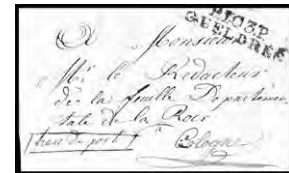 P103P
GUELDRES
A Monsieur
Mr le Redacteur
de la feuille Departemen
tale de la Roer
franc de port
à Cologne